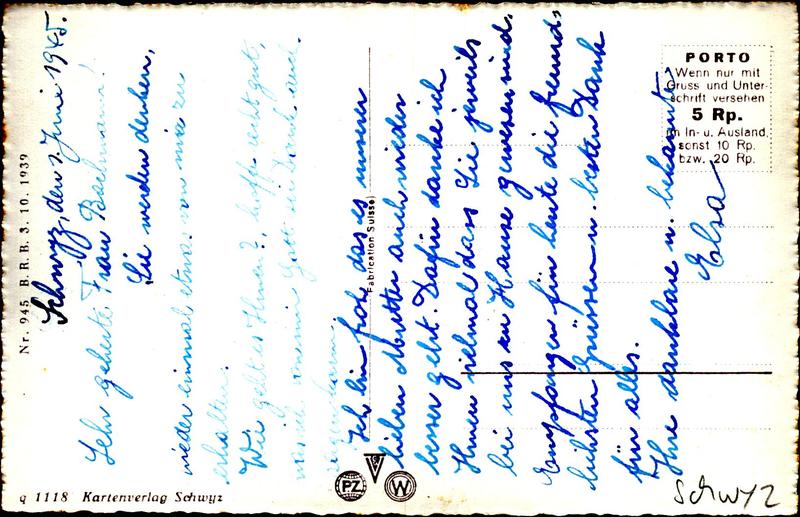 Schwyz, den 1. Juni 1945.
Sehr geehrte Frau Bachmann!
Sie werden denken,
wieder einmal etwas von mir zu
erhalten.
Wie geht es Ihnen?, hoffe recht gut,
was ich meinem Gott sei Dank auch
sagen kann.
Ich bin froh, das es unserer
lieben Mutter auch wieder
besser geht. Dafür danke ich
Ihnen vielmal dass Sie jeweils
bei uns zu Hause gewesen sind.
Empfangen für heute die freund-
lichsten Grüssen u. besten Dank
für alles.
Ihre dankbare u. bekannte
Elsa
PORTO
Wenn nur mit
Gruss und Unter-
schrift versehen
5 Rp.
im In- u. Ausland,
sonst 10 Rp.
bzw. 20 Rp.
Nr. 945 B. R. B. 3. 10. 1939
Fabrication Suisse
PZ
W
q 1118 Kartenverlag Schwyz
Schwyz